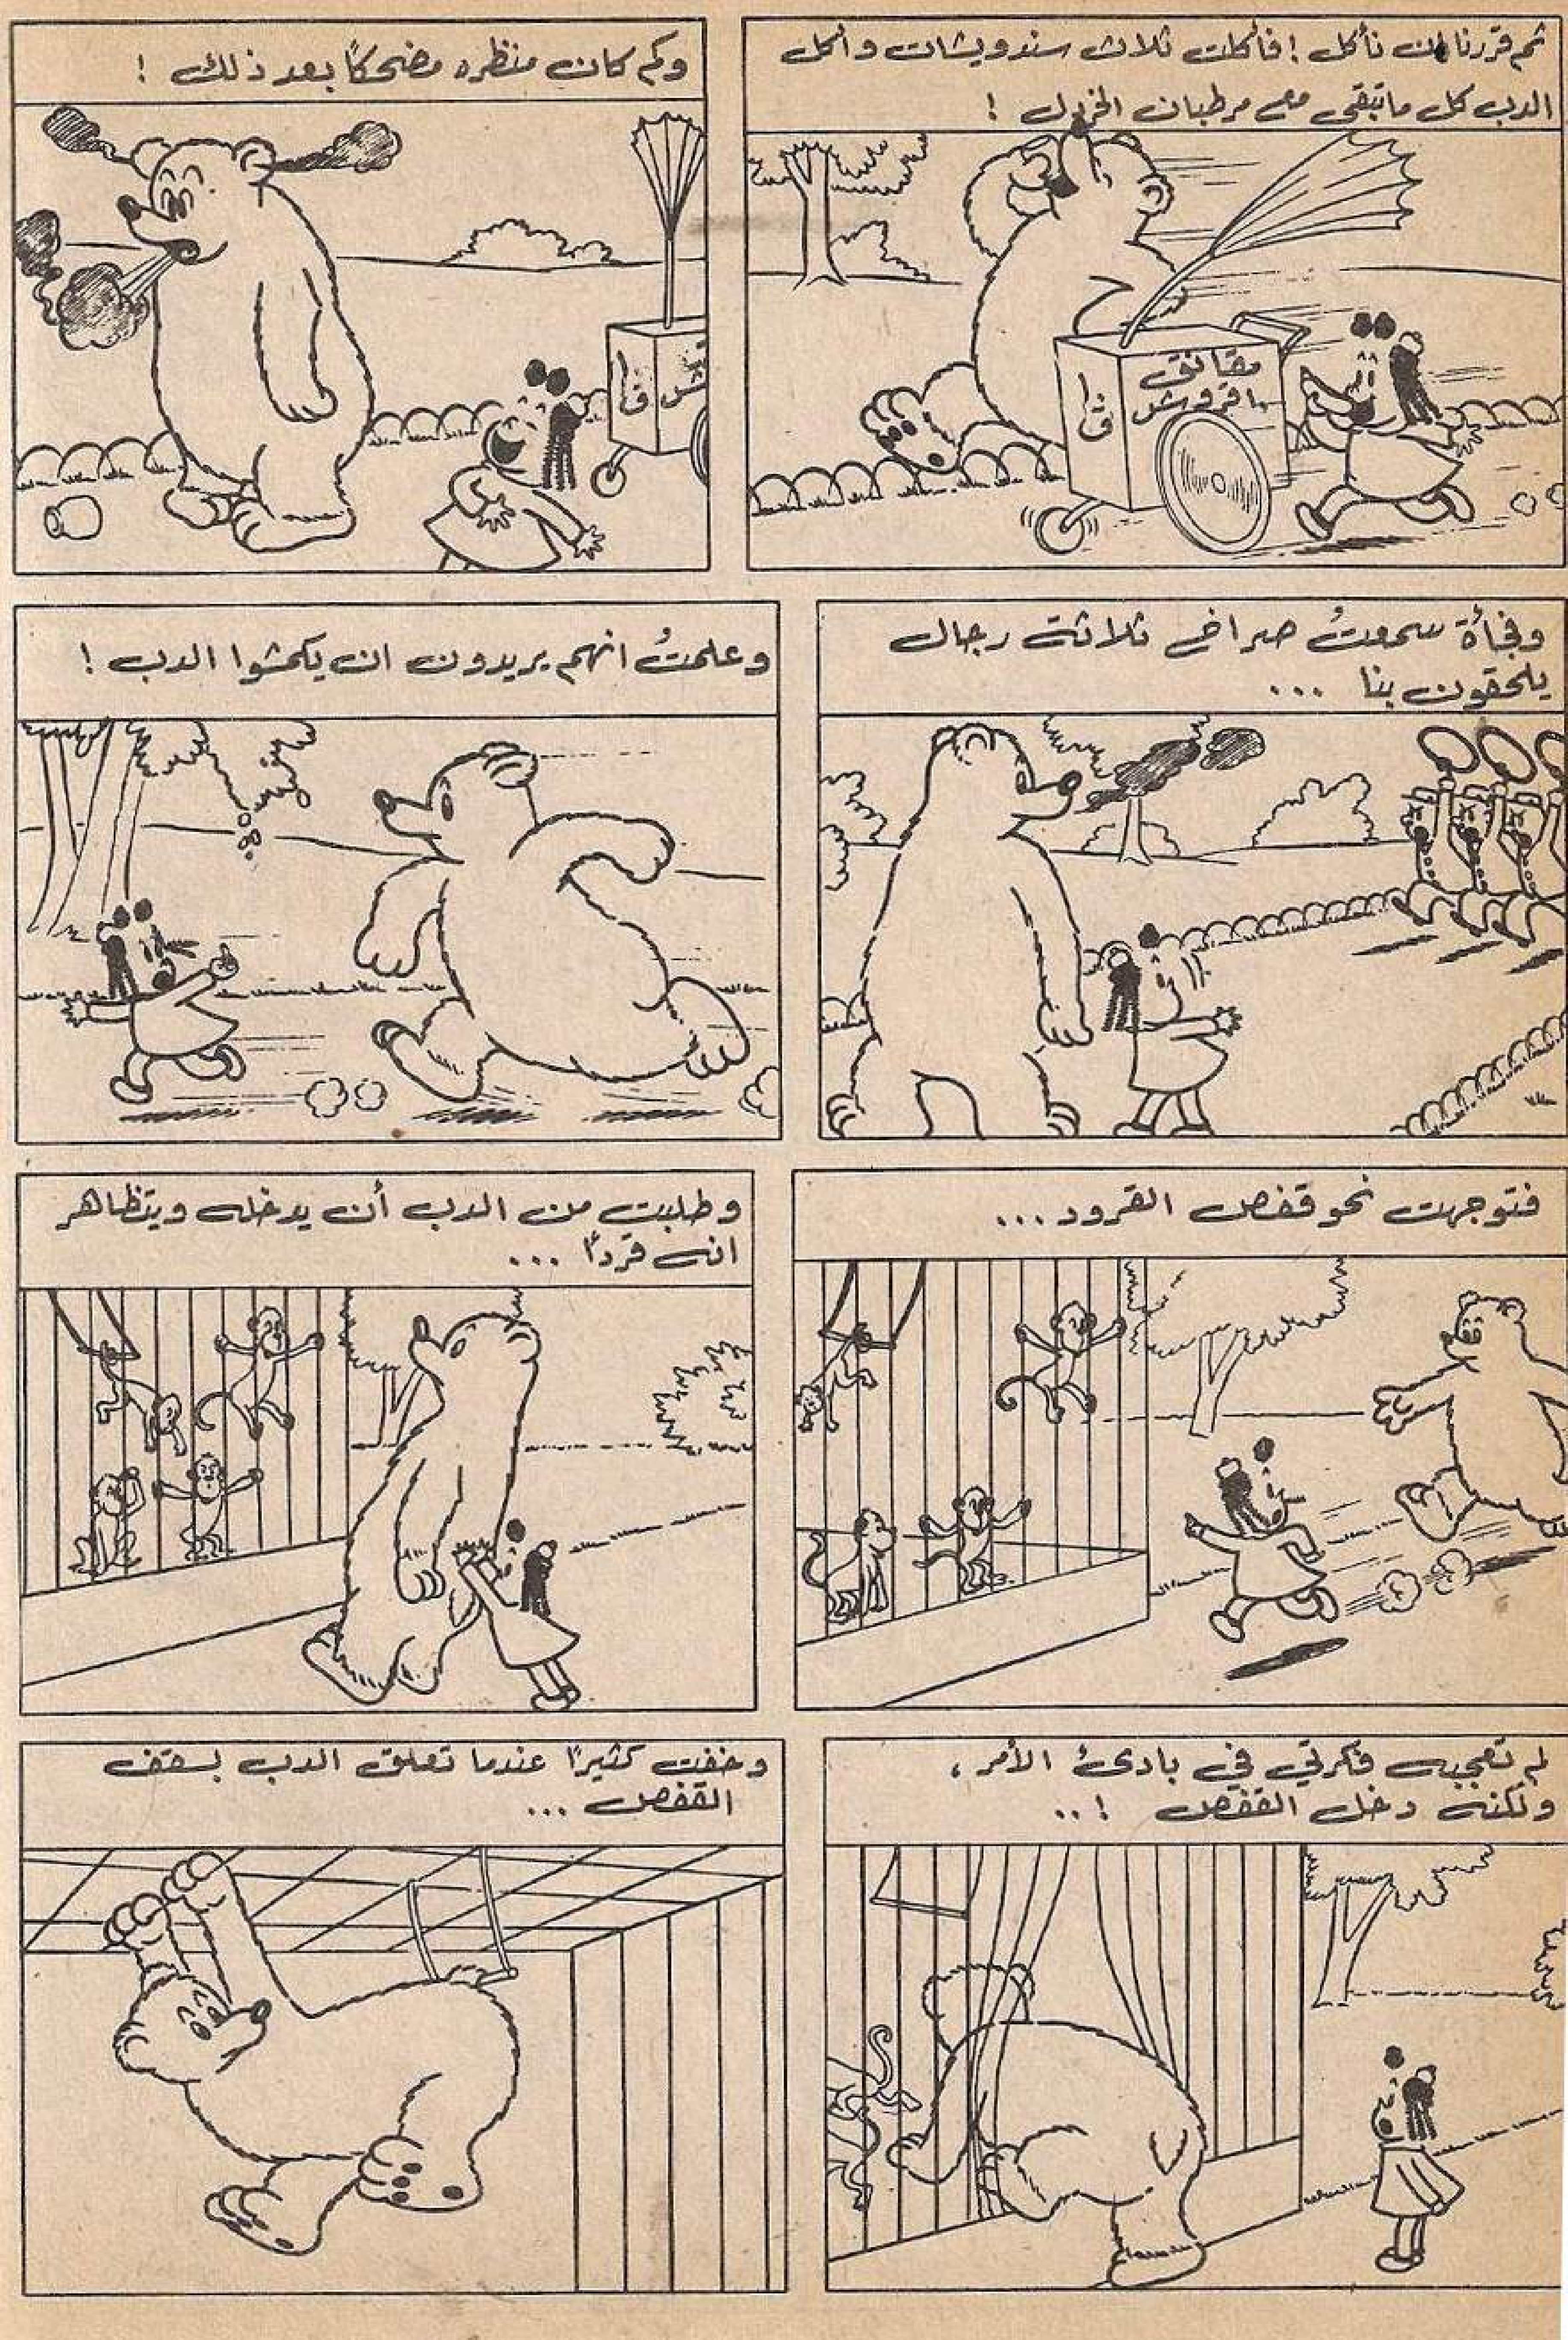 ثم قررنا ان نأكل ! فأكلت ثلاث سندويشات واكل
الدب كل ما تبقى مع مرطبان الخردل !
مقانق
١ قروش
١
ق
وكم كان منظره مضحكاً بعد ذلك !
١
ق
وفجأة سمعتُ صراخ ثلاثة رجال
يلحقون بنا ...
وعلمتُ انهم يريدون ان يكمشوا الدب !
فتوجهت نحو قفص القرود...
وطلبت من الدب أن يدخله ويتظاهر
انه قرداً ...
لم تعجبه فكرتي في بادئ الأمر ،
ولكنه دخل القفص !..
وخفت كثيراً عندما تعلق الدب بسقف
القفص ...